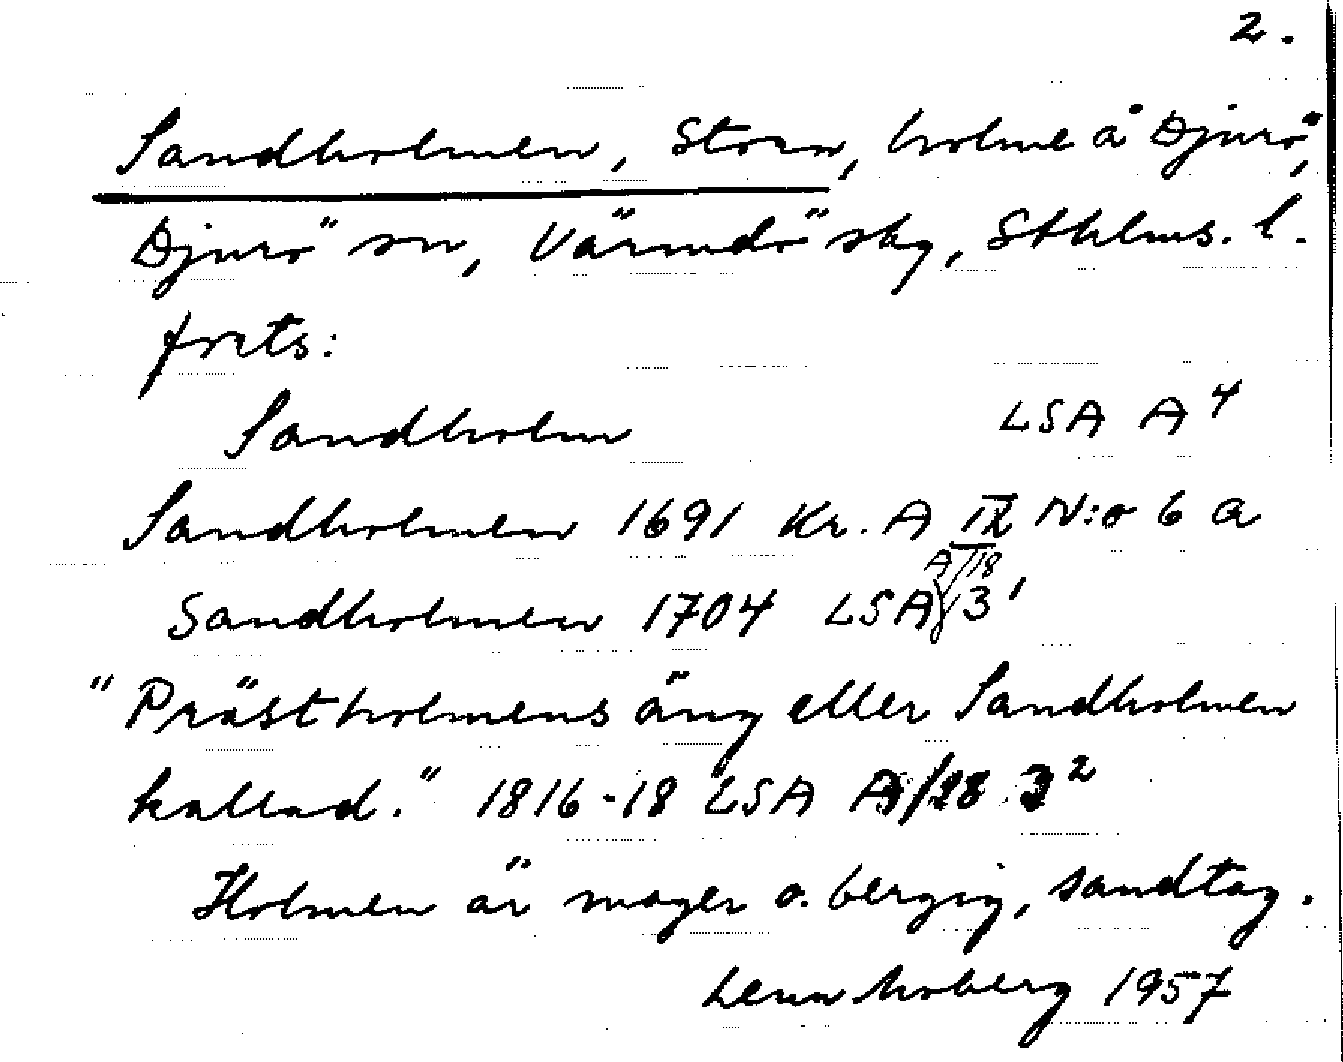 2.
Sandholmen, Stora, holme å Djurö,
Djurö sn, Värmdö skg, Sthlms. l.
forts:
Sandholm LSA A 4
Sandholmen 1691 Kr. A IX N:o 6 a
A/18
Sandholmen 1704 LSA 3 1
"Prästholmens äng eller Sandholmen
kallad." 1816-18 LSA A/28 3 2
Holmen är mager o. bergig, sandtag.
1957